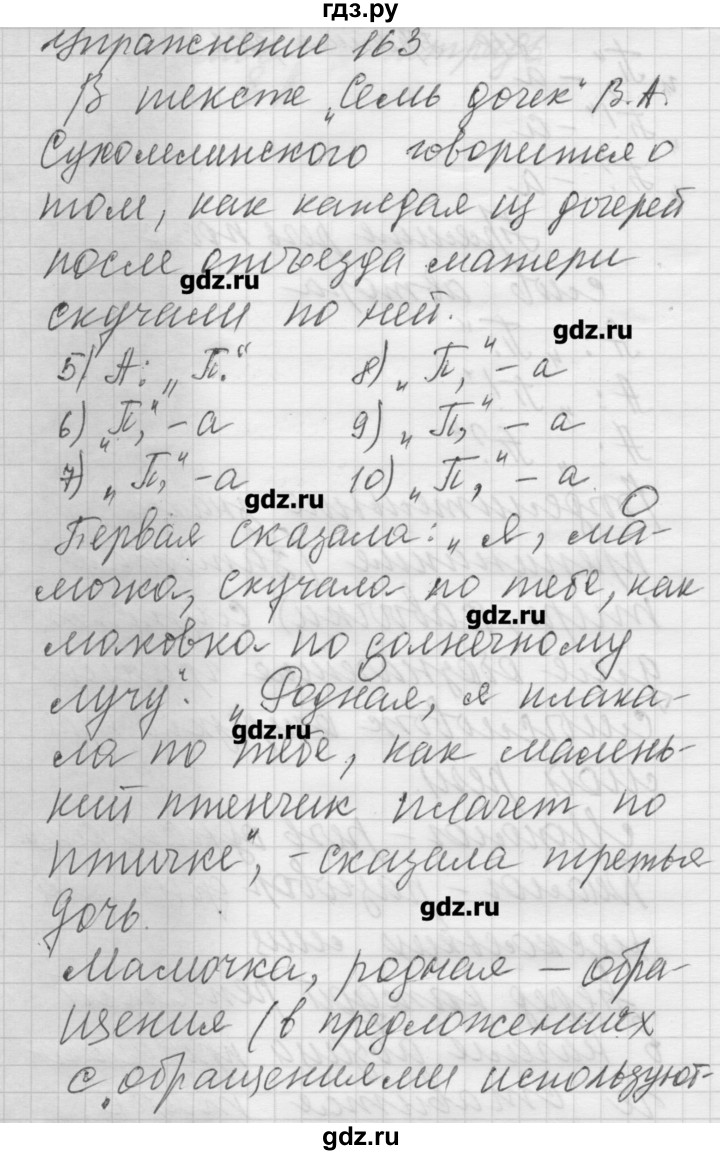 гдз.ру
Упражнение 163
В тексте „Семь дочек" В.А.
Сухомлинского говорится о
том, как каждая из дочерей
после отъезда матери
gdz.ru
скучали по ней.
gdz.ru
5) А: „П."
8) „П," – а
6) „П," – а
9) „П," – а
7) „П," – а
10) „П," – а.
gdz.ru
Первая сказала: „Я, ма-
мочка, скучала по тебе, как
gdz.ru
маковка по солнечному
лучу". „Родная, я плака-
gdz.ru
ла по тебе, как малень-
кий птенчик плачет по
птичке", – сказала третья
gdz.ru
дочь.
Мамочка, родная – обра-
щения (в предложениях
с обращениями используют-
gdz.ru